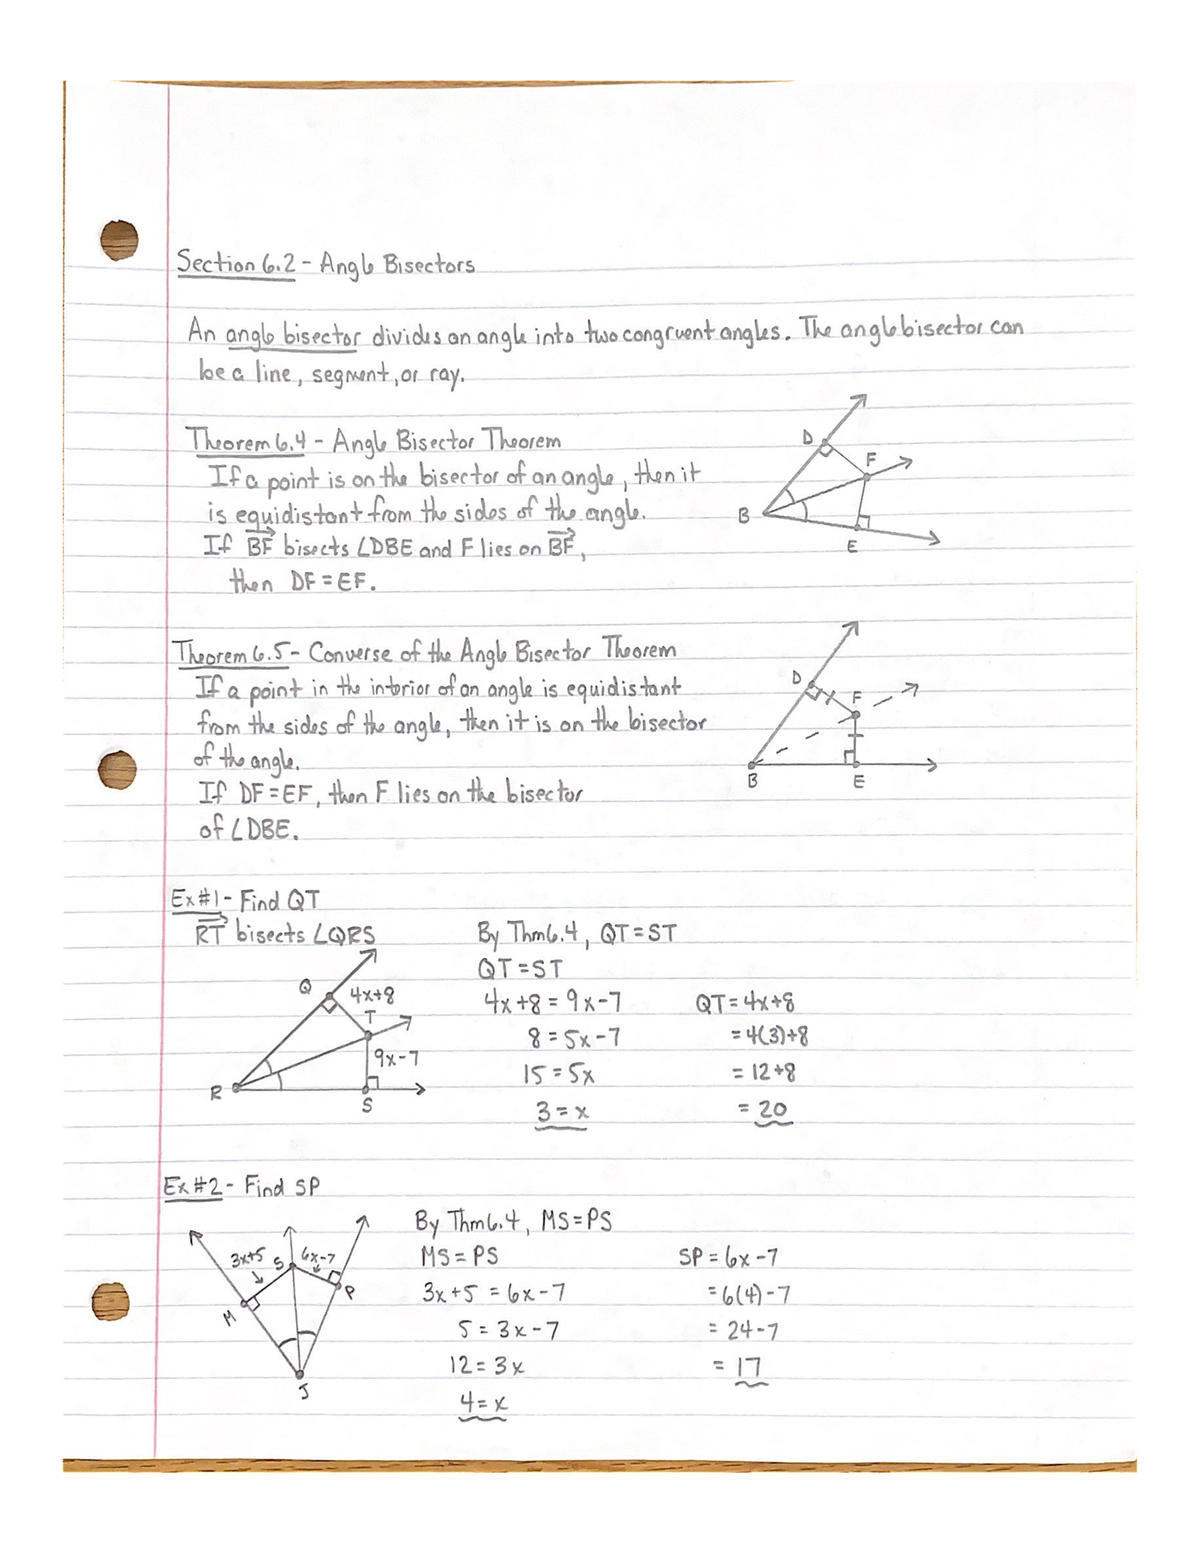 Section 6.2 - Angle Bisectors
An angle bisector divides an angle into two congruent angles. The angle bisector can
be a line, segment, or ray.
Theorem 6.4 - Angle Bisector Theorem
If a point is on the bisector of an angle, then it
is equidistant from the sides of the angle.
If BF bisects ∠DBE and F lies on BF,
then DF = EF.
D
F
B
E
Theorem 6.5 - Converse of the Angle Bisector Theorem
If a point in the interior of an angle is equidistant
from the sides of the angle, then it is on the bisector
of the angle.
If DF = EF, then F lies on the bisector
of ∠DBE.
D
F
B
E
Ex #1 - Find QT
RT bisects ∠QRS
Q
4x+8
T
9x-7
R
S
By Thm 6.4, QT = ST
QT = ST
4x+8 = 9x-7
8 = 5x-7
15 = 5x
3 = x
QT = 4x+8
= 4(3)+8
= 12+8
= 20
Ex #2 - Find SP
3x+5
S
6x-7
M
P
J
By Thm 6.4, MS = PS
MS = PS
3x+5 = 6x-7
5 = 3x-7
12 = 3x
4 = x
SP = 6x-7
= 6(4)-7
= 24-7
= 17